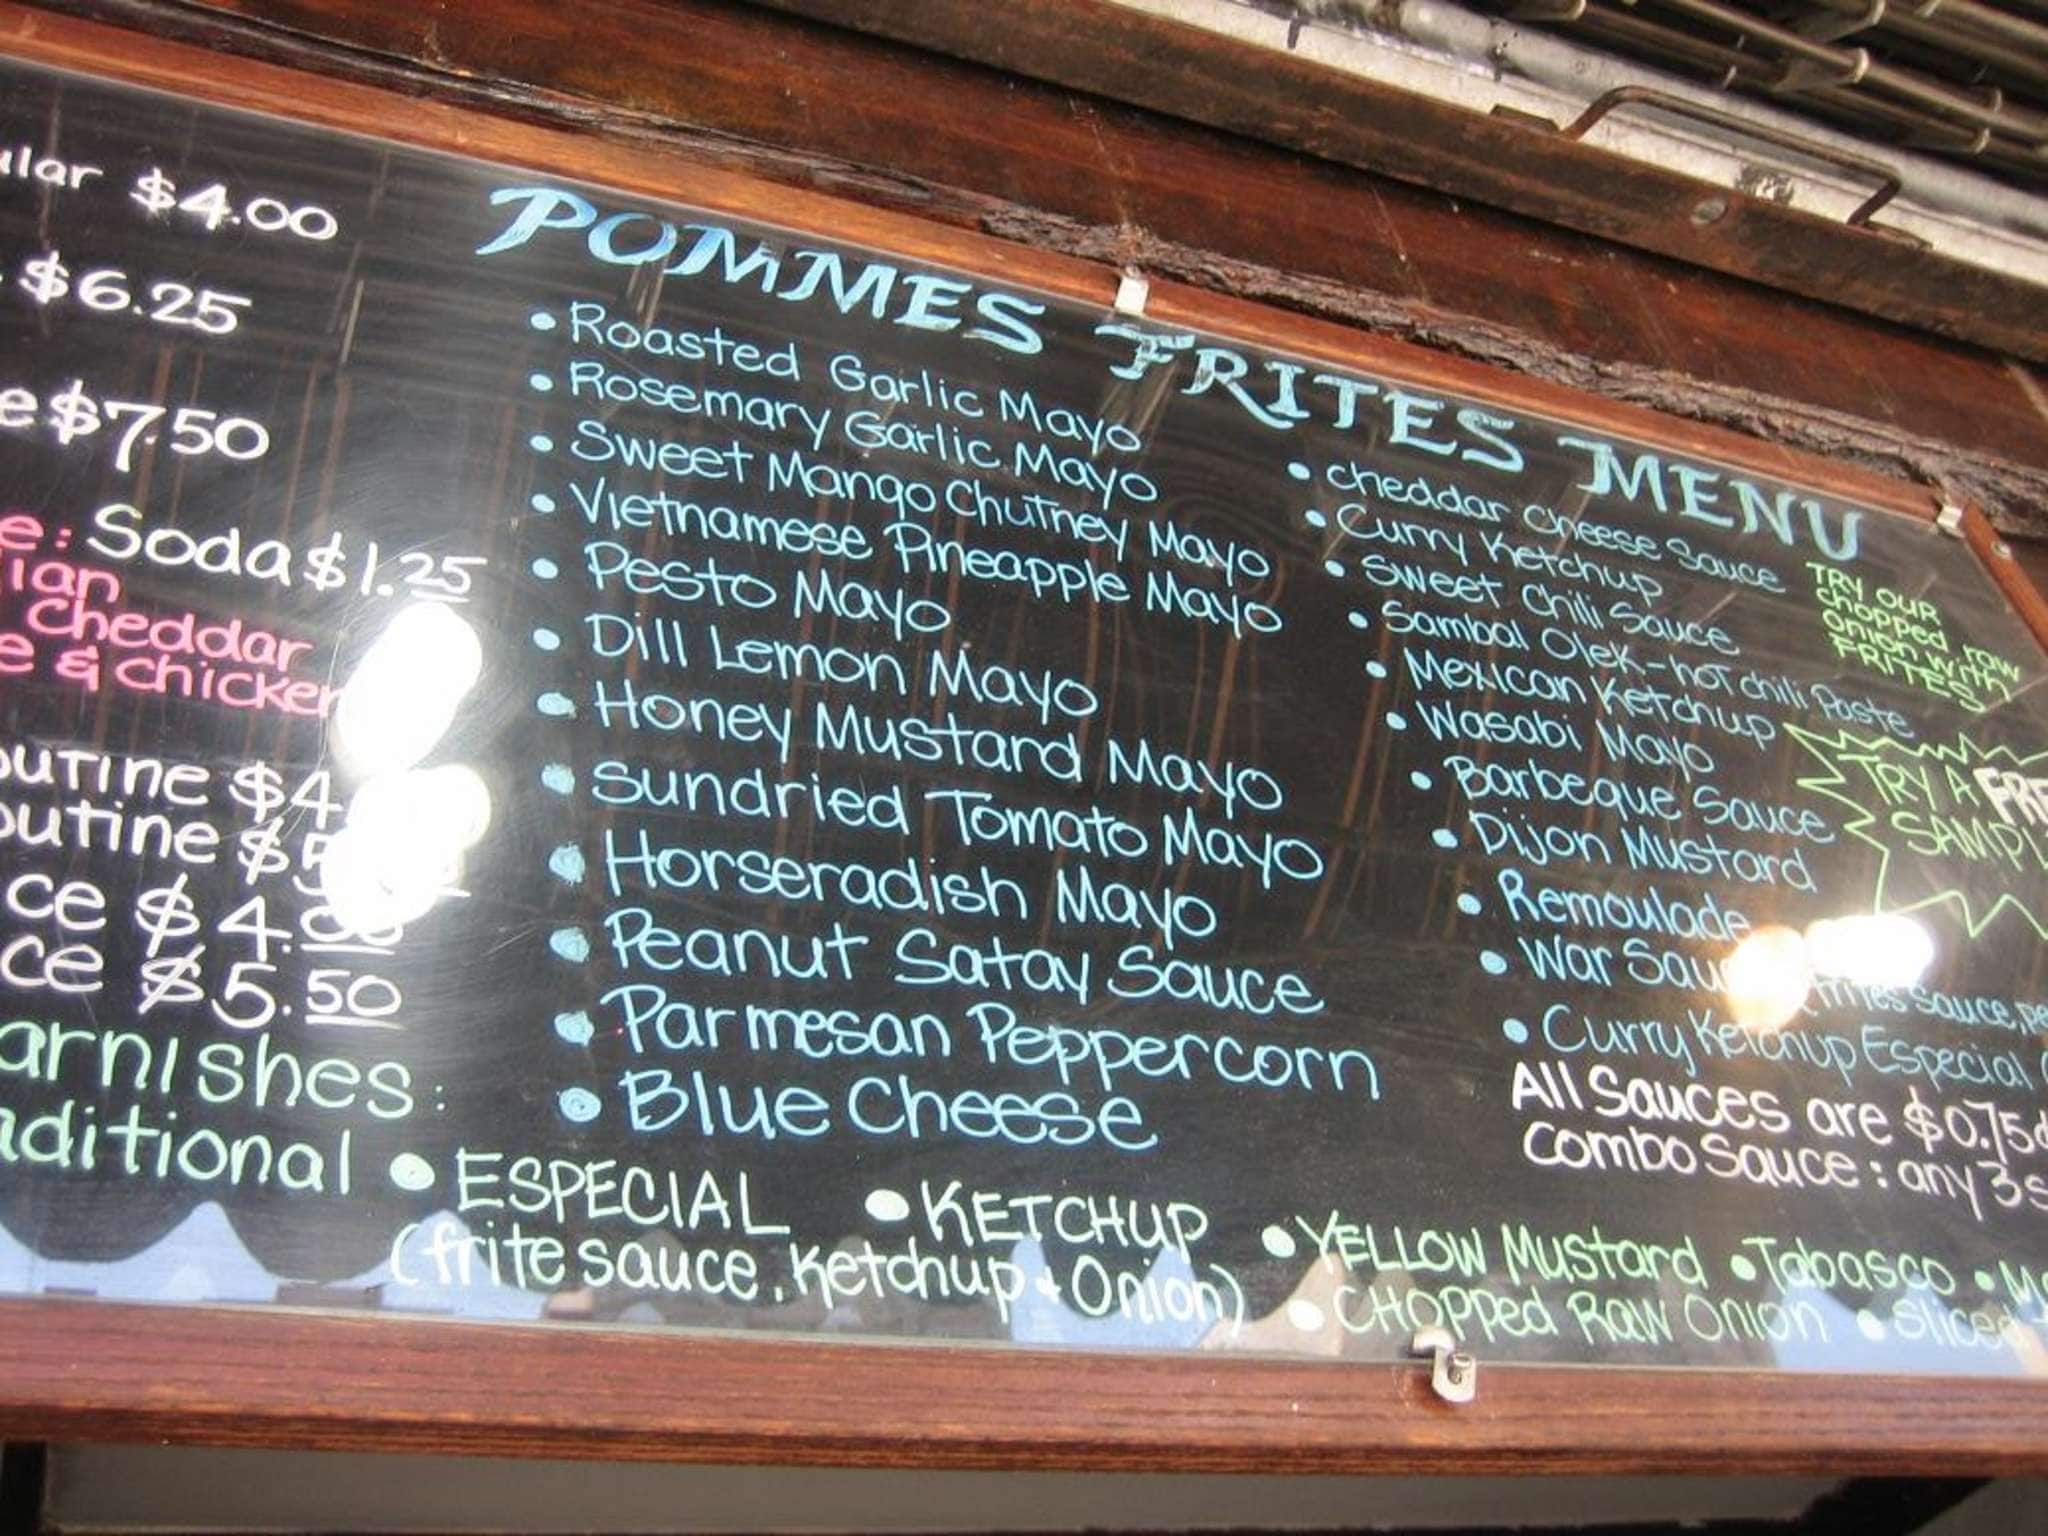 $4.00
$6.25
$7.50
Soda $1.25
Cheddar
& chicken
$4
$5
$4.00
$5.50
POMMES FRITES MENU
• Roasted Garlic Mayo
• Rosemary Garlic Mayo
• Sweet Mango Chutney Mayo
• Vietnamese Pineapple Mayo
• Pesto Mayo
• Dill Lemon Mayo
• Honey Mustard Mayo
• Sundried Tomato Mayo
• Horseradish Mayo
• Peanut Satay Sauce
• Parmesan Peppercorn
• Blue Cheese
• Cheddar Cheese Sauce
• Curry Ketchup
• Sweet Chili Sauce
• Sambal Olek-hot chili Paste
• Mexican Ketchup
• Wasabi Mayo
• Barbeque Sauce
• Dijon Mustard
• Remoulade
• War Frites Sauce,
• Curry Ketchup Especial
All Sauces are $0.75
Combo Sauce: any 3
TRY OUR
chopped raw
onion with
FRITES
TRY A
• ESPECIAL • KETCHUP
(frite sauce, Ketchup + Onion)
• YELLOW Mustard • Tabasco •
• CHOPPED RAW Onion • Sliced